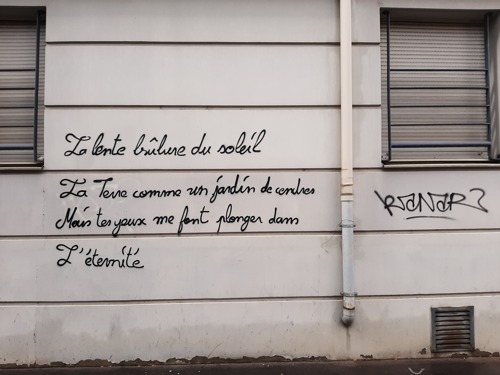 La lente brûlure du soleil
La Terre comme un jardin de cendres
Mais tes yeux me font plonger dans
L'éternité